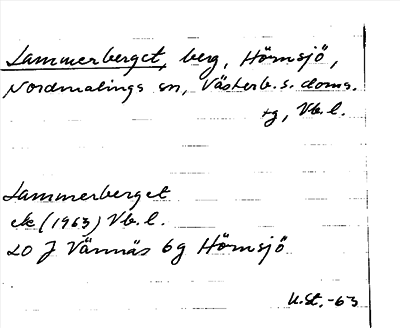 Lammerberget, berg, Hörnsjö,
Nordmalings sn, Västerb. s. doms.
tg, Vb. l.
Lammerberget
ek (1963) Vb. l.
20 J Vännäs 6g Hörnsjö
U.St. -63